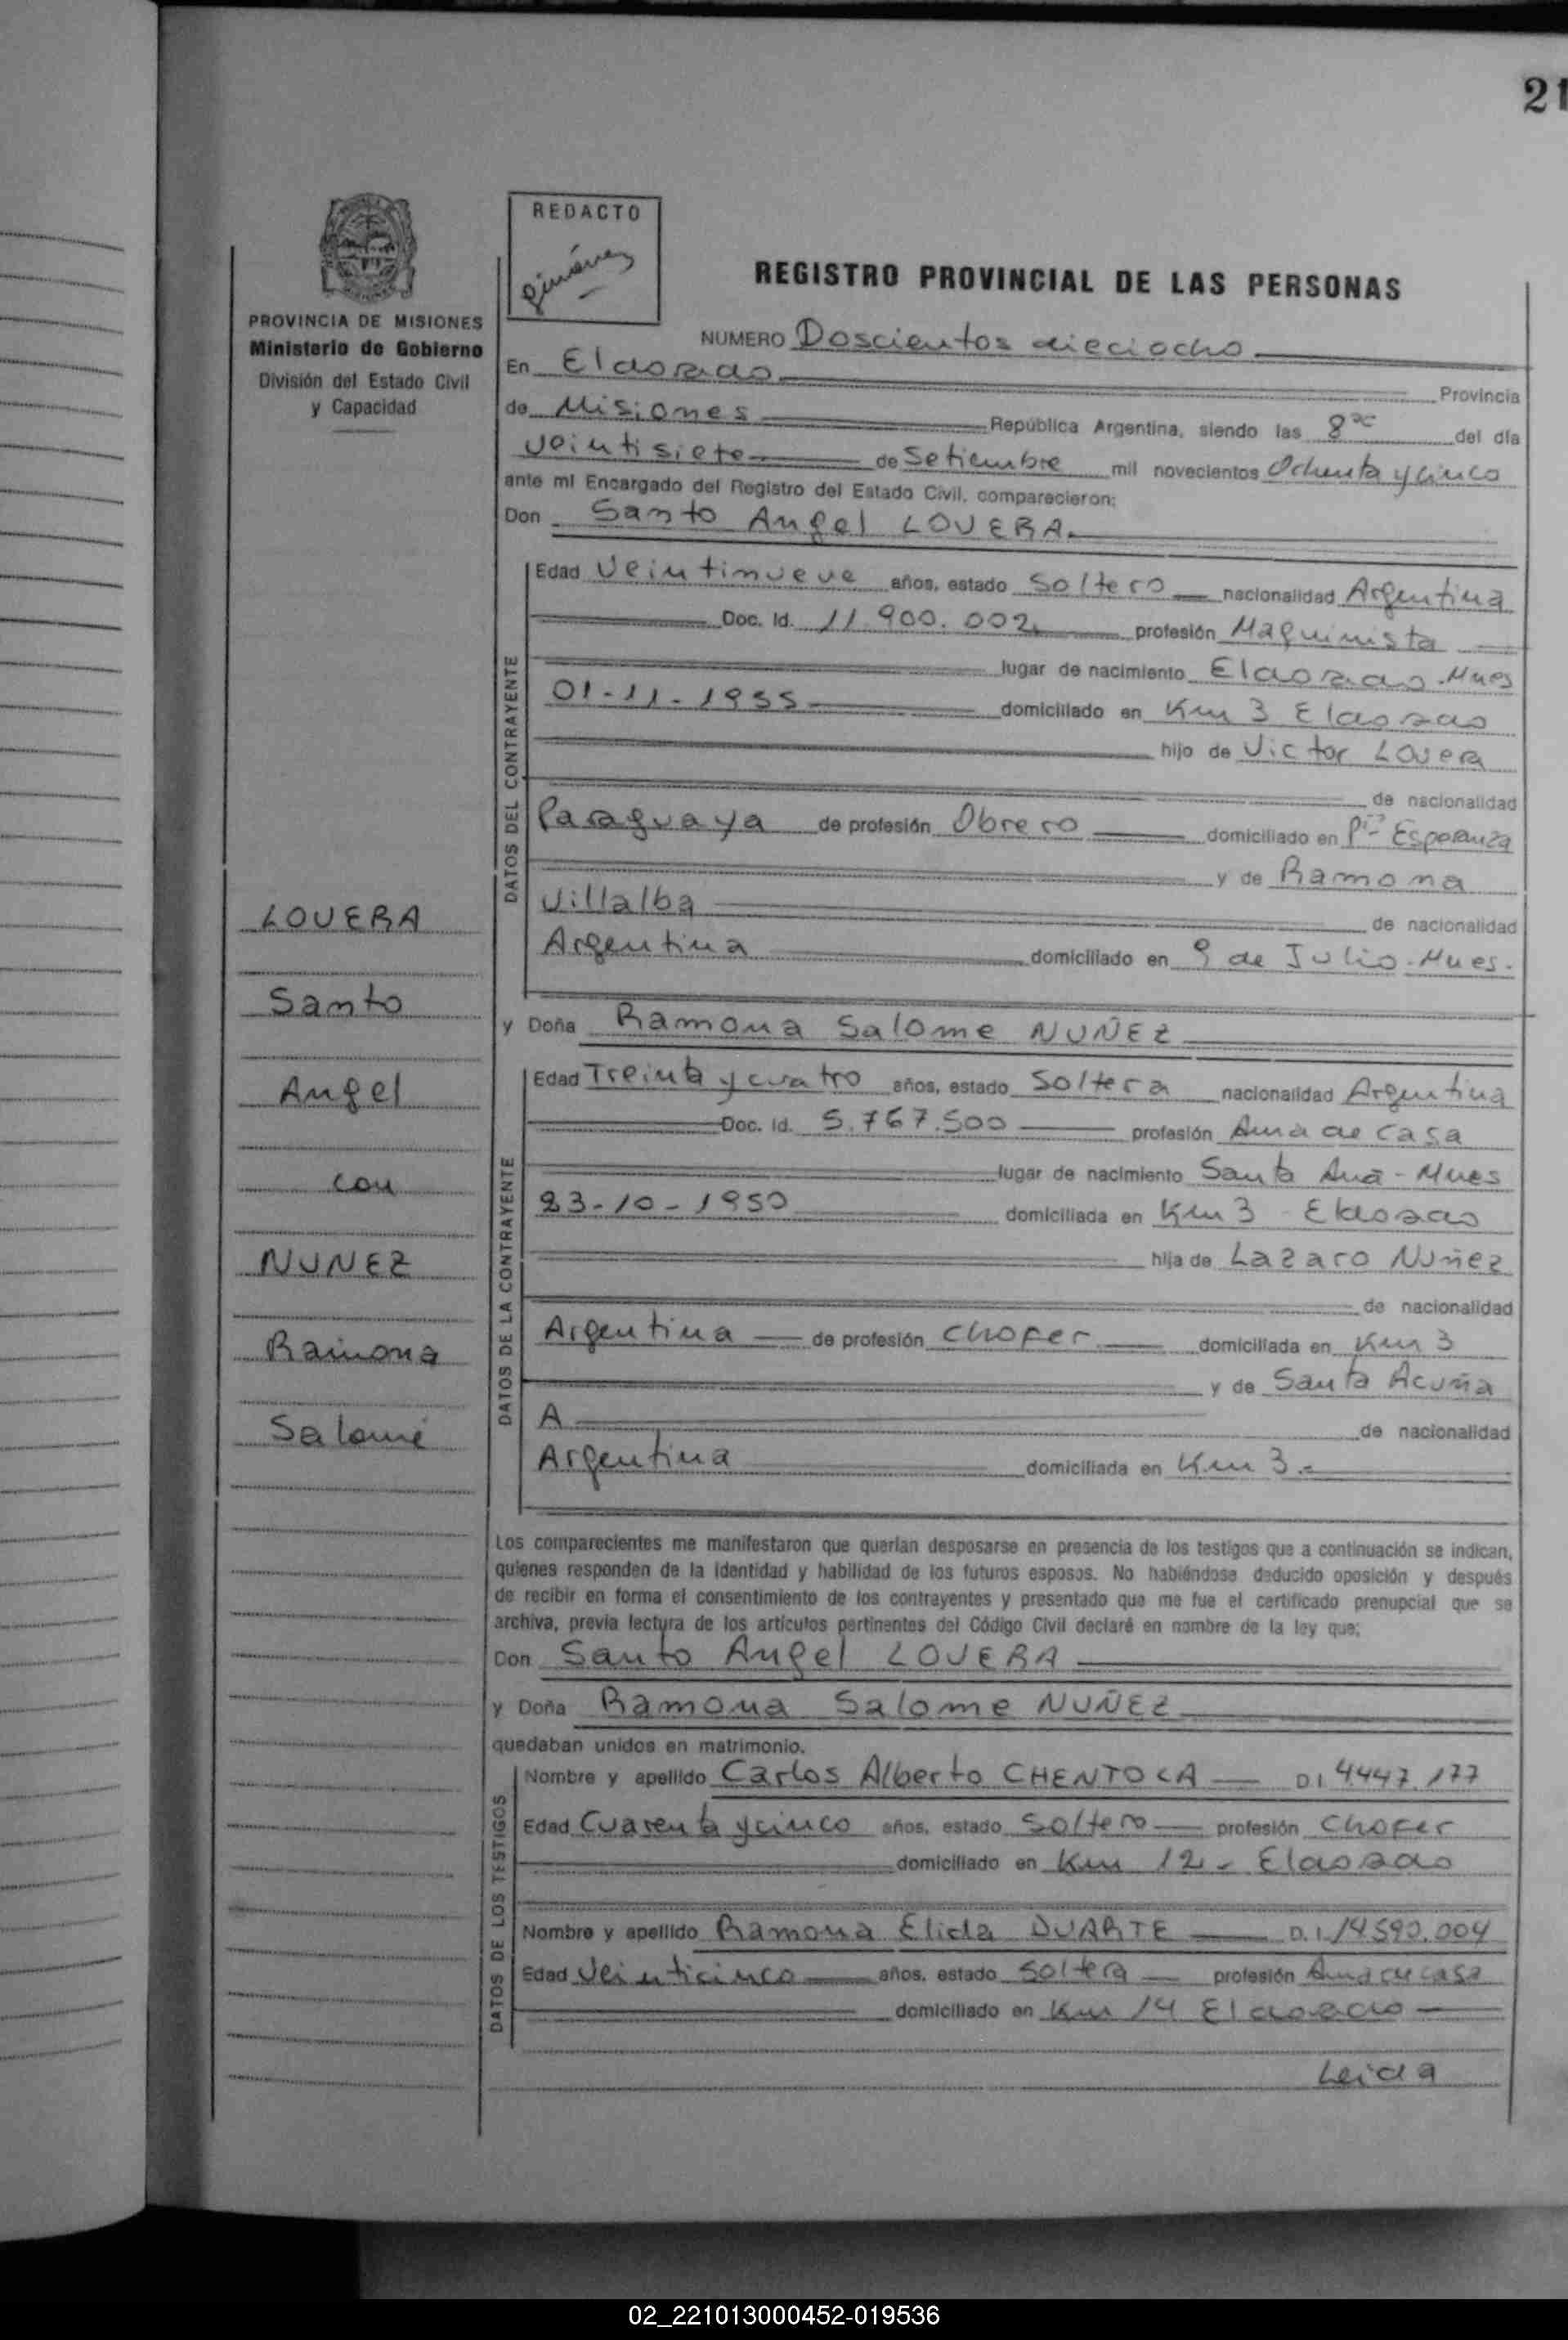 21
REDACTO
Giménez
REGISTRO PROVINCIAL DE LAS PERSONAS
PROVINCIA DE MISIONES
Ministerio de Gobierno
División del Estado Civil
y Capacidad
NUMERO Doscientos dieciocho
En Eldorado Provincia
de Misiones República Argentina, siendo las 8 del día
veintisiete de Setiembre mil novecientos Ochenta y cinco
ante mi Encargado del Registro del Estado Civil, comparecieron:
Don Santo Angel LOVERA
DATOS DEL CONTRAYENTE
Edad Veintinueve años, estado Soltero nacionalidad Argentina
Doc. Id. 11.900.002 profesión Maquinista
lugar de nacimiento Eldorado Mnes
01-11-1955 domiciliado en Km 3 Eldorado
hijo de Victor Lovera
de nacionalidad
Paraguaya de profesión Obrero domiciliado en Pto Esperanza
y de Ramona
Villalba de nacionalidad
Argentina domiciliado en 9 de Julio-Mnes.
y Doña Ramona Salome NUÑEZ
DATOS DE LA CONTRAYENTE
Edad Treinta y cuatro años, estado Soltera nacionalidad Argentina
Doc. Id. 5.767.500 profesión Ama de casa
lugar de nacimiento Santa Ana-Mnes
23-10-1950 domiciliada en Km 3 Eldorado
hija de Lazaro Nuñez
de nacionalidad
Argentina de profesión Chofer domiciliada en Km 3
y de Santa Acuña
A de nacionalidad
Argentina domiciliada en Km 3.-
Los comparecientes me manifestaron que querían desposarse en presencia de los testigos que a continuación se indican,
quienes responden de la identidad y habilidad de los futuros esposos. No habiéndose deducido oposición y después
de recibir en forma el consentimiento de los contrayentes y presentado que me fue el certificado prenupcial que se
archiva, previa lectura de los artículos pertinentes del Código Civil declaré en nombre de la ley que;
Don Santo Angel LOVERA
y Doña Ramona Salome NUÑEZ
quedaban unidos en matrimonio.
DATOS DE LOS TESTIGOS
Nombre y apellido Carlos Alberto CHENTOLA D.I 4.447.177
Edad Cuarenta y cinco años, estado Soltero profesión Chofer
domiciliado en Km 12 - Eldorado
Nombre y apellido Ramona Elida DUARTE D.I. 14.590.004
Edad Veinticinco años, estado Soltera profesión Ama de casa
domiciliado en Km 14 Eldorado
Leida
LOVERA
Santo
Angel
con
NUNEZ
Ramona
Salomé
02_221013000452-019536